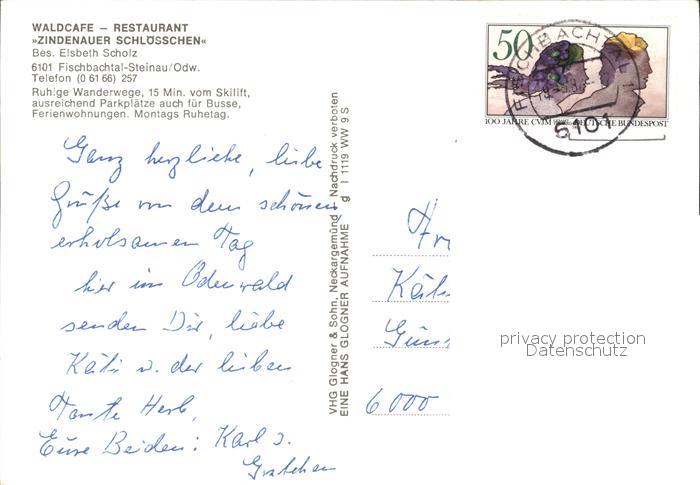 WALDCAFE – RESTAURANT
»ZINDENAUER SCHLÖSSCHEN«
Bes. Elsbeth Scholz
6101 Fischbachtal-Steinau/Odw.
Telefon (0 61 66) 257
Ruhige Wanderwege, 15 Min. vom Skilift,
ausreichend Parkplätze auch für Busse,
Ferienwohnungen. Montags Ruhetag.
Ganz herzliche, liebe
Grüße von dem schönen
erholsamen Tag
hier im Odenwald
senden Dir, liebe
Käti u. der lieben
Tante Herb,
Eure Beiden: Karl u.
Gretchen
VHG Glogner & Sohn, Neckargemünd Nachdruck verboten
EINE HANS GLOGNER AUFNAHME g I 1119 WW 9 S
50
100 JAHRE CVJM DEUTSCHE BUNDESPOST
FISCHBACHTAL
6101
Käti
6000
privacy protection
Datenschutz